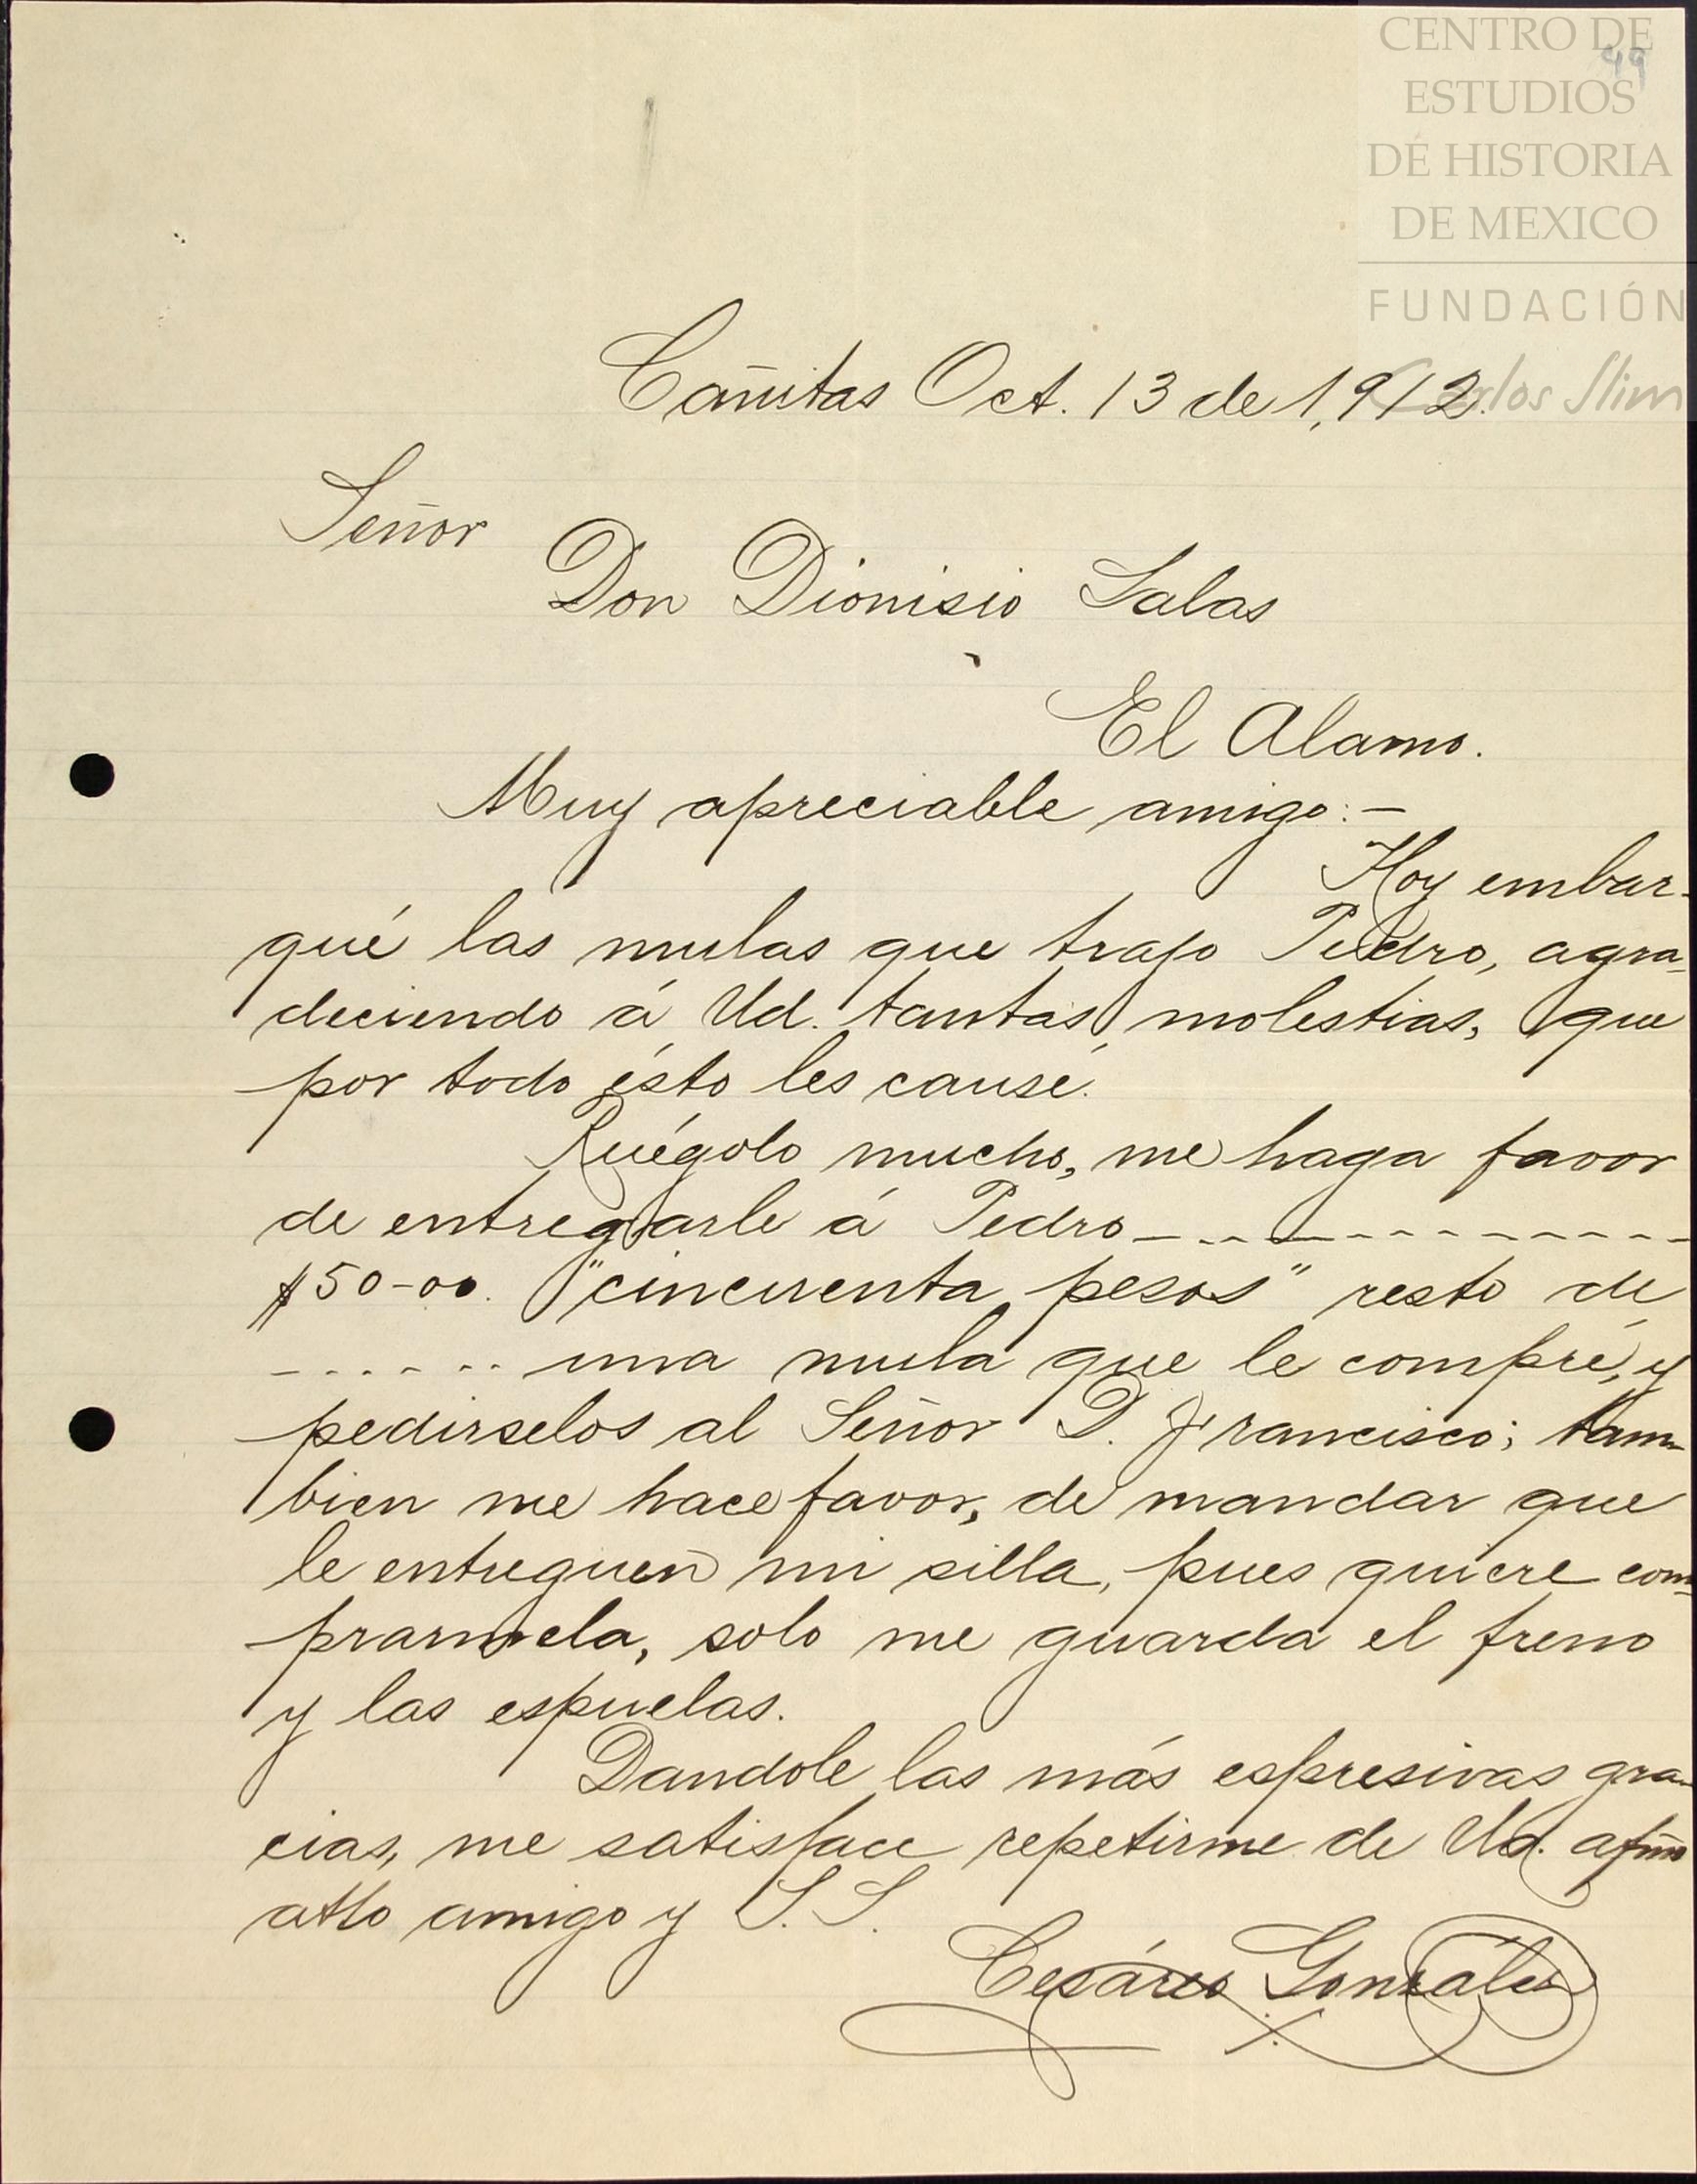 CENTRO DE
49
ESTUDIOS
DE HISTORIA
DE MEXICO
FUNDACIÓN
Carlos Slim
Cañitas Oct. 13 de 1,912.
Señor
Don Dionisio Salas
El Alamo.
Muy apreciable amigo:-
Hoy embar-
qué las mulas que trajo Pedro, agra-
deciendo á Ud. tantas molestias, que
por todo ésto les causé.
Ruégolo mucho, me haga favor
de entregarle á Pedro - - - - - - - - - - - -
$50-00. "cincuenta pesos" resto de
- - - - - - una mula que le compré, y
pedirselos al Señor D. Francisco; tam-
bien me hace favor, de mandar que
le entreguen mi silla, pues quiere com-
prarmela, solo me guarda el freno
y las espuelas.
Dandole las más espresivas gra-
cias, me satisface repetirme de Ud. afmo
atto amigo y S. S.
Cesáreo Gonzáles